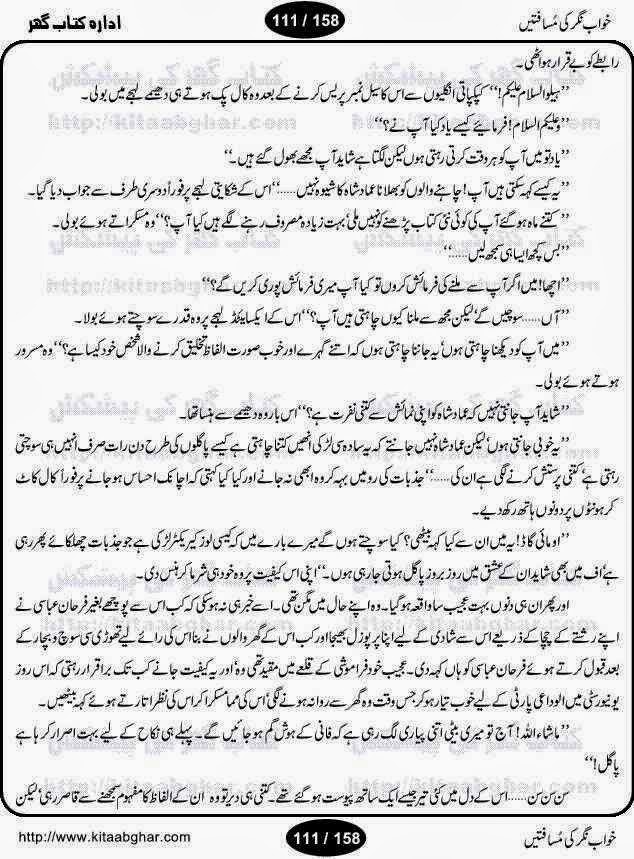 خواب نگر کی مُسافتیں
111 / 158
ادارہ کتاب گھر
رابطے کو بے قرار ہو اٹھی۔
’’ہیلو السلام علیکم!‘‘ کپکپاتی انگلیوں سے اس کا سیل نمبر پریس کرنے کے بعد وہ کال پک ہوتے ہی دھیمے لہجے میں بولی۔
’’وعلیکم السلام! فرمایئے کیسے یاد کیا آپ نے؟‘‘
’’یاد تو میں آپ کو ہر وقت کرتی رہتی ہوں لیکن لگتا ہے شاید آپ مجھے بھول گئے ہیں۔‘‘
’’یہ کیسے کہہ سکتی ہیں آپ! چاہنے والوں کو بھلانا عماد شاہ کا شیوہ نہیں......‘‘ اس کے شکایتی لہجے پر فوراً دوسری طرف سے جواب دیا گیا۔
’’کتنے ماہ ہو گئے آپ کی کوئی نئی کتاب پڑھنے کو نہیں ملی‘ بہت زیادہ مصروف رہنے لگے ہیں کیا آپ؟‘‘ وہ مسکراتے ہوئے بولی۔
’’بس کچھ ایسا ہی سمجھ لیں......‘‘
’’اچھا! میں اگر آپ سے ملنے کی فرمائش کروں تو کیا آپ میری فرمائش پوری کریں گے؟‘‘
’’آں...... سوچیں گے‘ لیکن مجھ سے ملنا کیوں چاہتی ہیں آپ؟‘‘ اس کے ایکسائیٹڈ لہجے پر وہ قدرے سوچتے ہوئے بولا۔
’’میں آپ کو دیکھنا چاہتی ہوں‘ یہ جاننا چاہتی ہوں کہ اتنے گہرے اور خوب صورت الفاظ تخلیق کرنے والا شخص خود کیسا ہے؟‘‘ وہ مسرور
ہوتے ہوئے بولی۔
’’شاید آپ جانتی نہیں کہ عماد شاہ کو اپنی نمائش سے کتنی نفرت ہے؟‘‘ اس بار وہ دھیمے سے ہنسا تھا۔
’’یہ خوبی جانتی ہوں‘ لیکن عماد شاہ نہیں جانتے کہ یہ سادہ سی لڑکی انھیں کتنا چاہتی ہے کیسے پاگلوں کی طرح دن رات صرف انہیں ہی سوچتی
رہتی ہے‘ کتنی پرستش کرنے لگی ہے ان کی......‘‘ جذبات کی رو میں بہہ کر وہ ابھی نہ جانے اور کیا کیا کہتی کہ اچانک احساس ہو جانے پر فوراً کال کاٹ
کر ہونٹوں پر دونوں ہاتھ رکھ دیے۔
’’او مائی گاڈ! یہ میں ان سے کیا کہہ بیٹھی؟ کیا سوچتے ہوں گے میرے بارے میں کہ کیسی لوز کیریکٹر لڑکی ہے جو جذبات چھلکائے پھر رہی
ہے‘ اف میں بھی شاید ان کے عشق میں روز بروز پاگل ہوتی جا رہی ہوں۔‘‘ اپنی اس کیفیت پر وہ خود ہی شرما کر ہنس دی۔
اور پھر ان ہی دنوں بہت عجیب سا واقعہ ہو گیا۔ وہ اپنے حال میں مگن تھی۔ اسے خبر ہی نہ ہو سکی کہ کب اس سے پوچھے بغیر فرحان عباسی نے
اپنے رشتے کے چچا کے ذریعے اس سے شادی کے لیے اپنا پرپوزل بھیجا اور کب اس کے گھر والوں نے بنا اس کی رائے لیے تھوڑی سی سوچ و بچار کے
بعد قبول کرتے ہوئے فرحان عباسی کو ہاں کہہ دی۔ عجیب خود فراموشی کے قلعے میں مقید تھی وہ‘ اور یہ کیفیت جانے کب تک برقرار رہتی کہ اس روز
یونیورسٹی میں الوداعی پارٹی کے لیے خوب تیار ہو کر جس وقت وہ گھر سے روانہ ہونے لگی‘ اس کی مما مسکرا کر اس کی نظر اتارتے ہوئے کہہ بیٹھیں۔
’’ماشاء اللہ! آج تو میری بیٹی اتنی پیاری لگ رہی ہے کہ فانی کے ہوش گم ہو جائیں گے۔ پہلے ہی نکاح کے لیے بہت اصرار کر رہا ہے
پاگل!‘‘
سن سن سن...... اس کے دل میں کئی تیر جیسے ایک ساتھ پیوست ہو گئے تھے۔ کتنی ہی دیر تو وہ ان کے الفاظ کا مفہوم سمجھنے سے قاصر رہی‘ لیکن
خواب نگر کی مُسافتیں
111 / 158
http://www.kitaabghar.com